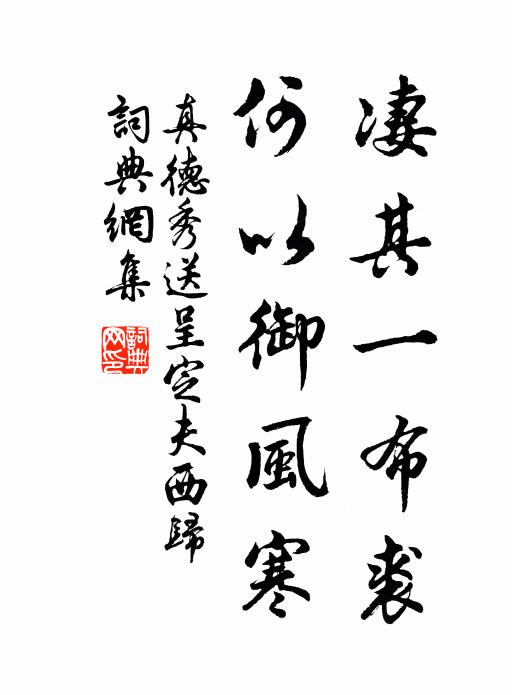 凄其一布裘
何以御風寒
真德秀送呈定夫西歸
詞典網集
詞典
网印